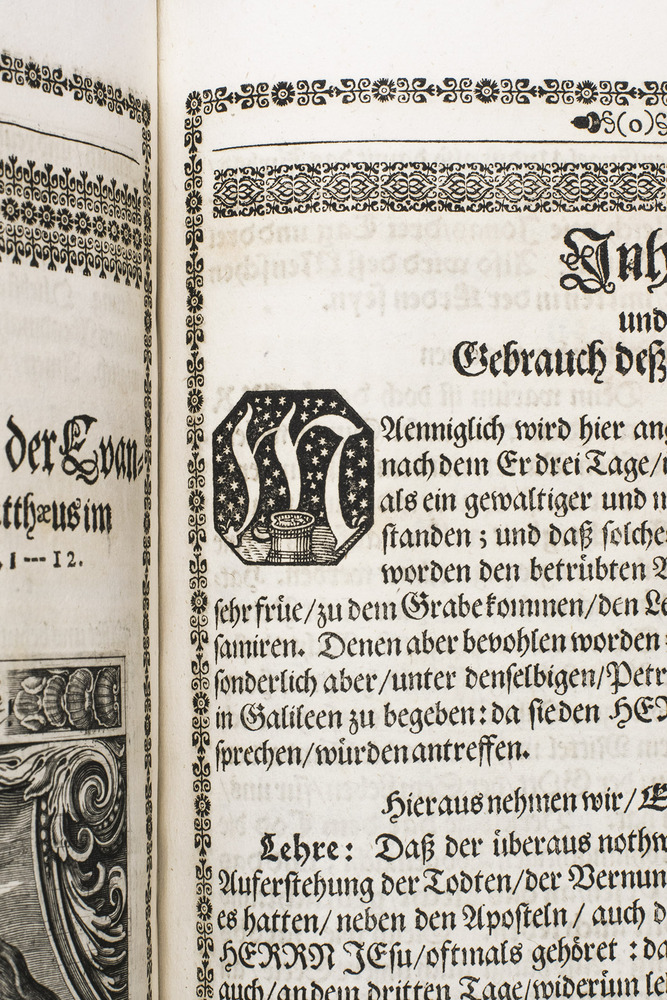 der Evan-
tthæus im
1 --- 12.
§(o)§
Inh
und
Gebrauch deß
MAenniglich wird hier an
nach dem Er drei Tage/
als ein gewaltiger und
standen ; und daß solche
worden den betrübten
sehr früe/zu dem Grabe kommen/den
samiren. Denen aber bevohlen worden :
sonderlich aber/unter denselbigen/Petr
in Galileen zu begeben: da sie den HER
sprechen/würden antreffen.
Hieraus nehmen wir/
Lehre: Daß der überaus nothw
Auferstehung der Todten/der Vernun
es hatten/ neben den Aposteln / auch d
HERRN JEsu/oftmals gehöret : da
auch/an dem dritten Tage/widerüm le